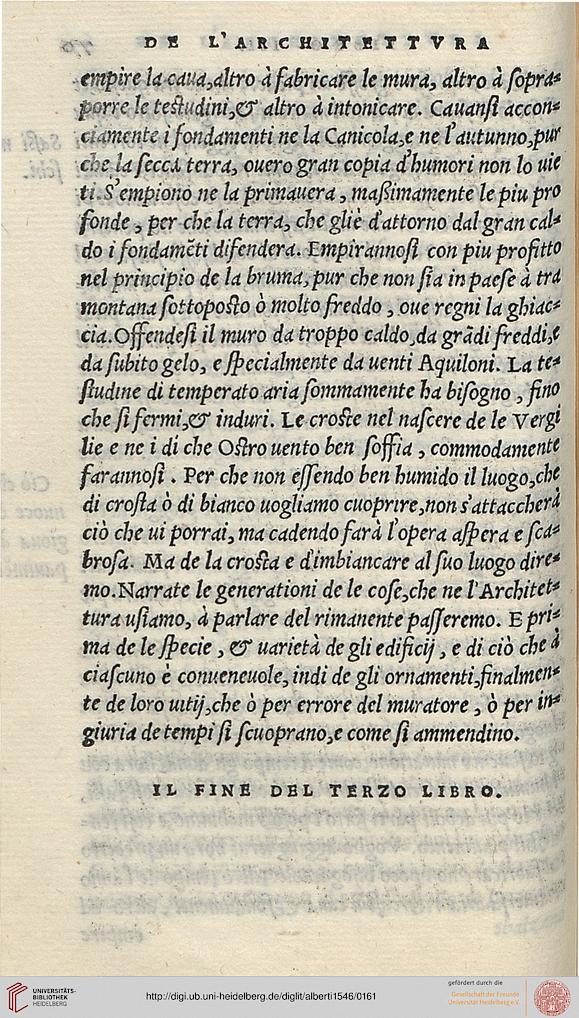 DE L'ARCHITETTVRA
empire la caua,altro à fabricare le mura, altro à sopra=
porre le testudini,& altro à intonicare. Cauansi accon=
ciamente i fondamenti ne la Canicola,e ne l'autunno,pur
che la secca terra, ouero gran copia d'humori non lo uie
ti. S'empiono ne la primauera, maßimamente le piu pro
fonde, per che la terra, che gliè d'attorno dal gran cal=
do i fondamẽti difendera. Empirannosi con piu profitto
nel principio de la bruma, pur che non sia in paese à tra
montana sottoposto ò molto freddo, oue regni la ghiac=
cia. Offendesi il muro da troppo caldo, da grãdi freddi,e
da subito gelo, e specialmente da uenti Aquiloni. La te=
studine di temperato aria sommamente ha bisogno, fino
che si fermi,& induri. Le croste nel nascere de le Vergi
lie e ne i di che Ostro uento ben soffia, commodamente
farannosi. Per che non essendo ben humido il luogo,che
di crosta ò di bianco uogliamo cuoprire,non s'attaccherà
ciò che ui porrai, ma cadendo farà l'opera aspera e sca=
brosa. Ma de la crosta e d'imbiancare al suo luogo dire=
mo. Narrate le generationi de le cose,che ne l'Architet=
tura usiamo, à parlare del rimanente passeremo. E pri=
ma de le specie, & uarietà de gli edificij, e di ciò che à
ciascuno è conueneuole, indi de gli ornamenti,finalmen=
te de loro uitij,che ò per errore del muratore, ò per in=
giuria de tempi si scuoprano,e come si ammendino.
IL FINE DEL TERZO LIBRO.
UNIVERSITÄTS-
BIBLIOTHEK
HEIDELBERG
http://digi.ub.uni-heidelberg.de/diglit/alberti1546/0161
gefördert durch die
Gesellschaft der Freunde
Universität Heidelberg e.V.